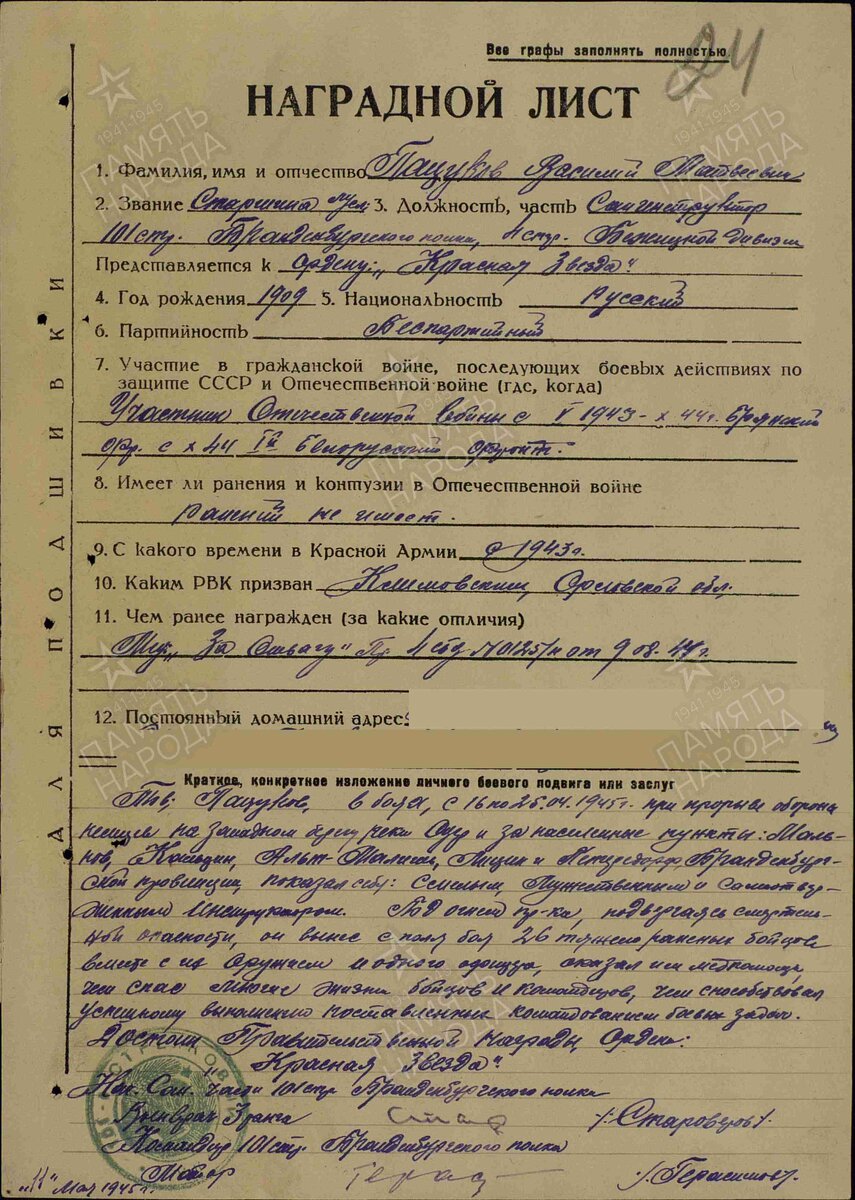 Все графы заполнять полностью.
24
НАГРАДНОЙ ЛИСТ
1. Фамилия, имя и отчество Пацуков Василий Матвеевич
2. Звание Старшина 3. Должность, часть Санинструктор
101 стр. Бранденбургского полка, 4 стр. Бежицкой дивизии
Представляется к ордену: „Красная Звезда"
4. Год рождения 1909 5. Национальность Русский
6. Партийность Беспартийный
7. Участие в гражданской войне, последующих боевых действиях по
защите СССР и Отечественной войне (где, когда)
Участник Отечественной войны с V 1943 - X 44 г. Брянский
фр. с X 44 Iй Белорусский фронт.
8. Имеет ли ранения и контузии в Отечественной войне
ранений не имеет.
9. С какого времени в Красной Армии с 1943 г.
10. Каким РВК призван Климовским, Орловской обл.
11. Чем ранее награжден (за какие отличия)
Мед. „За Отвагу" Пр. 4 сд №0125/н от 9.08.44 г.
12. Постоянный домашний адрес:
Краткое, конкретное изложение личного боевого подвига или заслуг
Тов. Пацуков, в боях, с 16 по 25.04.1945 г. при прорыве обороны
немцев на западном берегу реки Одер и за населенные пункты: Маль-
нов, Альт-Малиш, и Петерсдорф, Бранденбург-
ской провинции, показал себя: Смелым, Мужественным и самоотвер-
женным Инструктором. Под огнем пр-ка, подвергаясь смертель-
ной опасности, он вынес с поля боя 26 тяжело раненых бойцов
вместе с их оружием и одного офицера, оказал им медпомощь,
чем спас многие жизни бойцов и командиров, чем способствовал
успешному выполнению поставленных командованием боевых задач.
Достоин Правительственной награды, Ордена:
„Красная Звезда"
Нач. Сан. Части 101 стр. Бранденбургского полка
Военврач 3 ранга /Староверов/.
Командир 101 стр. Бранденбургского полка
Майор /Герасимов/.
Мая 1945 г.
ДЛЯ ПОДШИВКИ
1941-1945
ПАМЯТЬ
НАРОДА